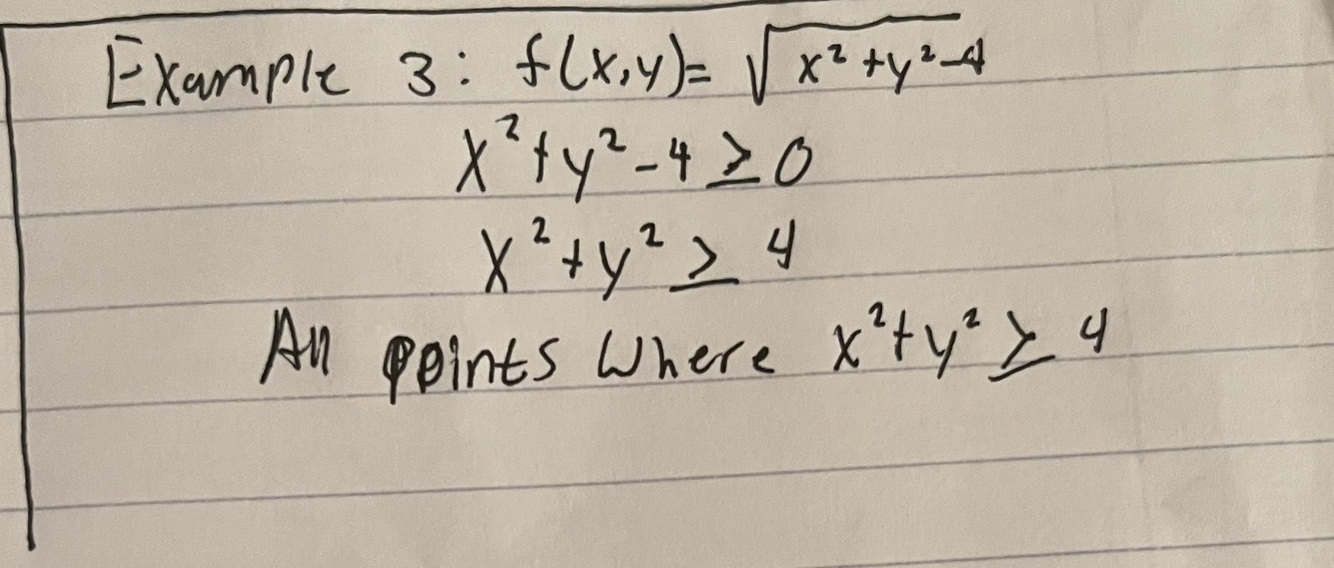 Example 3: f(x,y)= √x²+y²-4
x²+y²-4 ≥ 0
x²+y² ≥ 4
All points where x²+y² ≥ 4